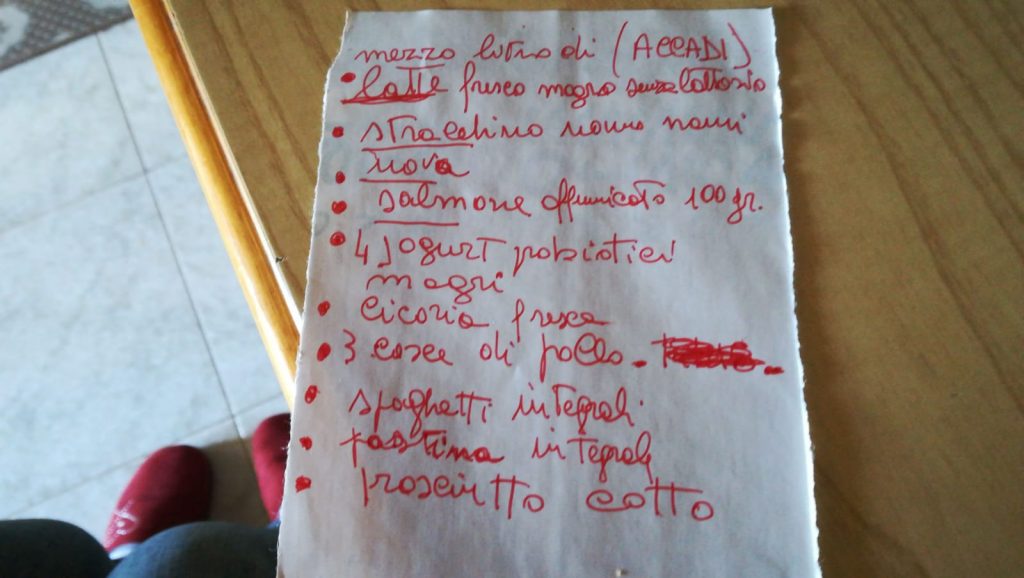 mezzo litro di (ACCADI)
• latte fresco magro senza lattosio
• stracchino nonno nanni
• uova
• salmone affumicato 100 gr.
• 4 Jogurt probiotici
magri
• cicoria fresca
• 3 cosce di pollo.
• spaghetti integrali
• pastina integrale
• prosciutto cotto